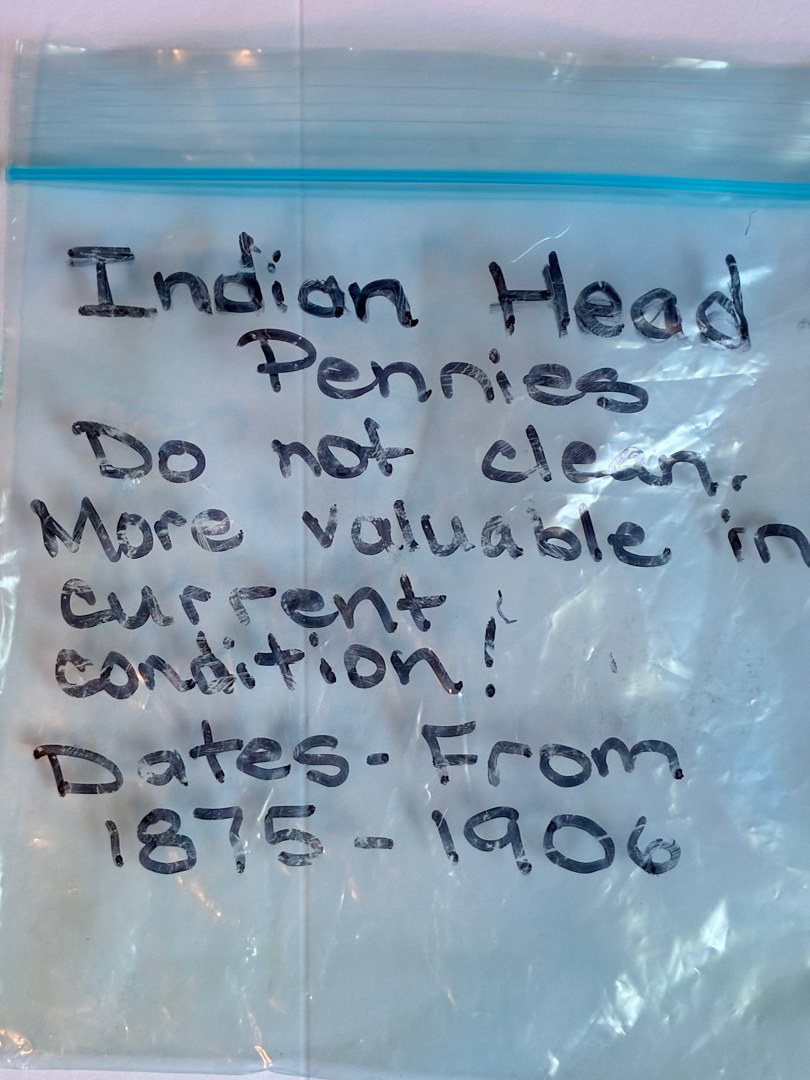 Indian Head
Pennies
Do not clean.
More valuable in
current
condition!
Dates- From
1875 - 1906